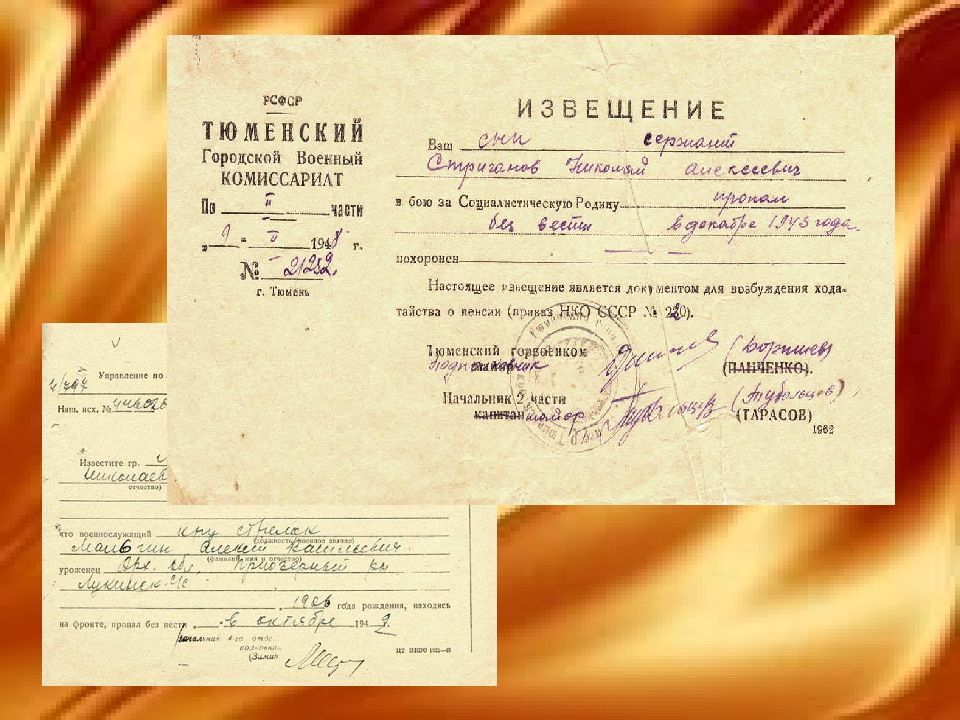 РСФСР
ТЮМЕНСКИЙ
Городской Военный
КОМИССАРИАТ
По II части
„9" - II 1948 г.
№ 21252.
г. Тюмень
ИЗВЕЩЕНИЕ
Ваш сын сержант
Стриганов Николай Алексеевич
в бою за Социалистическую Родину пропал
без вести в декабре 1943 года.
похоронен
Настоящее извещение является документом для возбуждения хода-
тайства о пенсии (приказ НКО СССР № 220).
Тюменский горвоенком
подполковник майор (ПАНЧЕНКО).
Начальник 2 части
капитан майор (ТАРАСОВ)
1962
Управление по
Наш. исх. №
Известите гр.
Николаев
отчество)
что военнослужащий стрелок
(должность, военное звание)
Малыгин Алексей Васильевич.
(фамилия, имя и отчество)
уроженец Арх. обл, Приозерный рн
Лукинск с/с
1906 года рождения, находясь
на фронте, пропал без вести в октябре 1942.
начальник 4-го отде
полковник
(Зимин